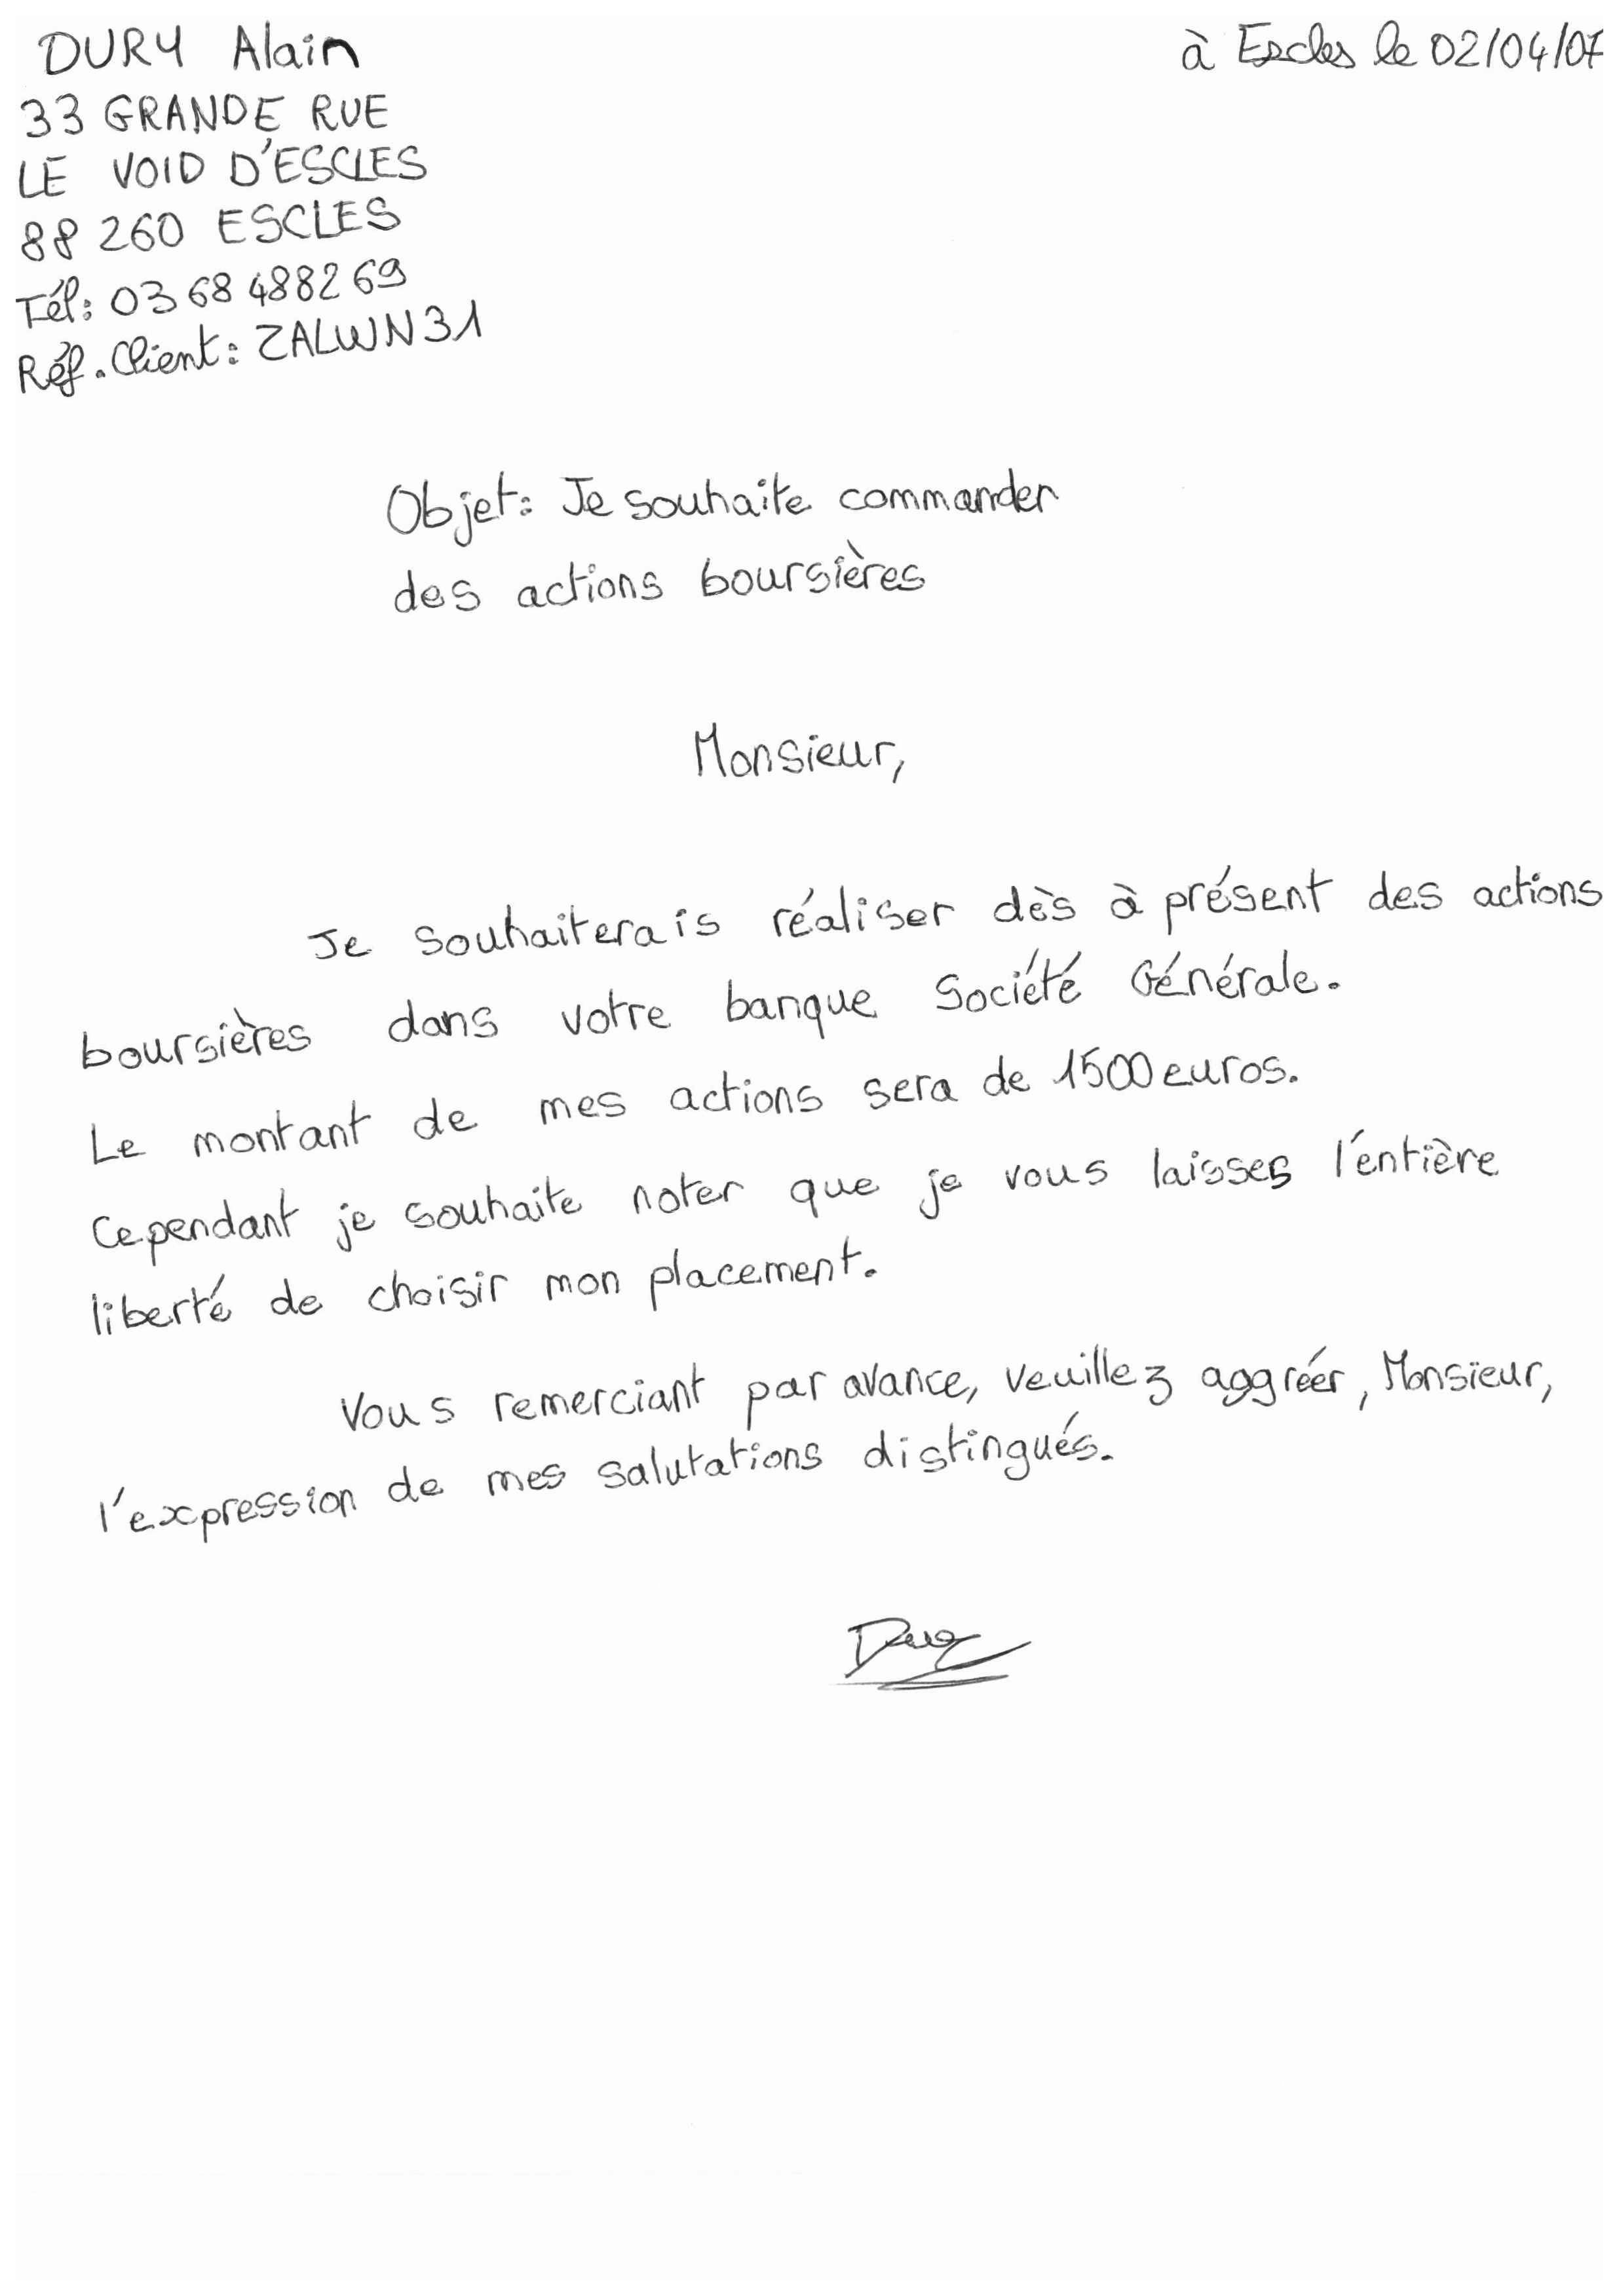 DURY Alain
à Escles le 02/04/07
33 GRANDE RUE
LE VOID D'ESCLES
88 260 ESCLES
Tél: 03 68 48 82 69
Réf. Client: ZALWN31
Objet: Je souhaite commander
des actions boursières
Monsieur,
Je souhaiterais réaliser dès à présent des actions
boursières dans votre banque Société Générale.
Le montant de mes actions sera de 1500 euros.
Cependant je souhaite noter que je vous laisses l'entière
liberté de choisir mon placement.
Vous remerciant par avance, veuillez aggréér, Monsieur,
l'expression de mes salutations distingués.
Dury